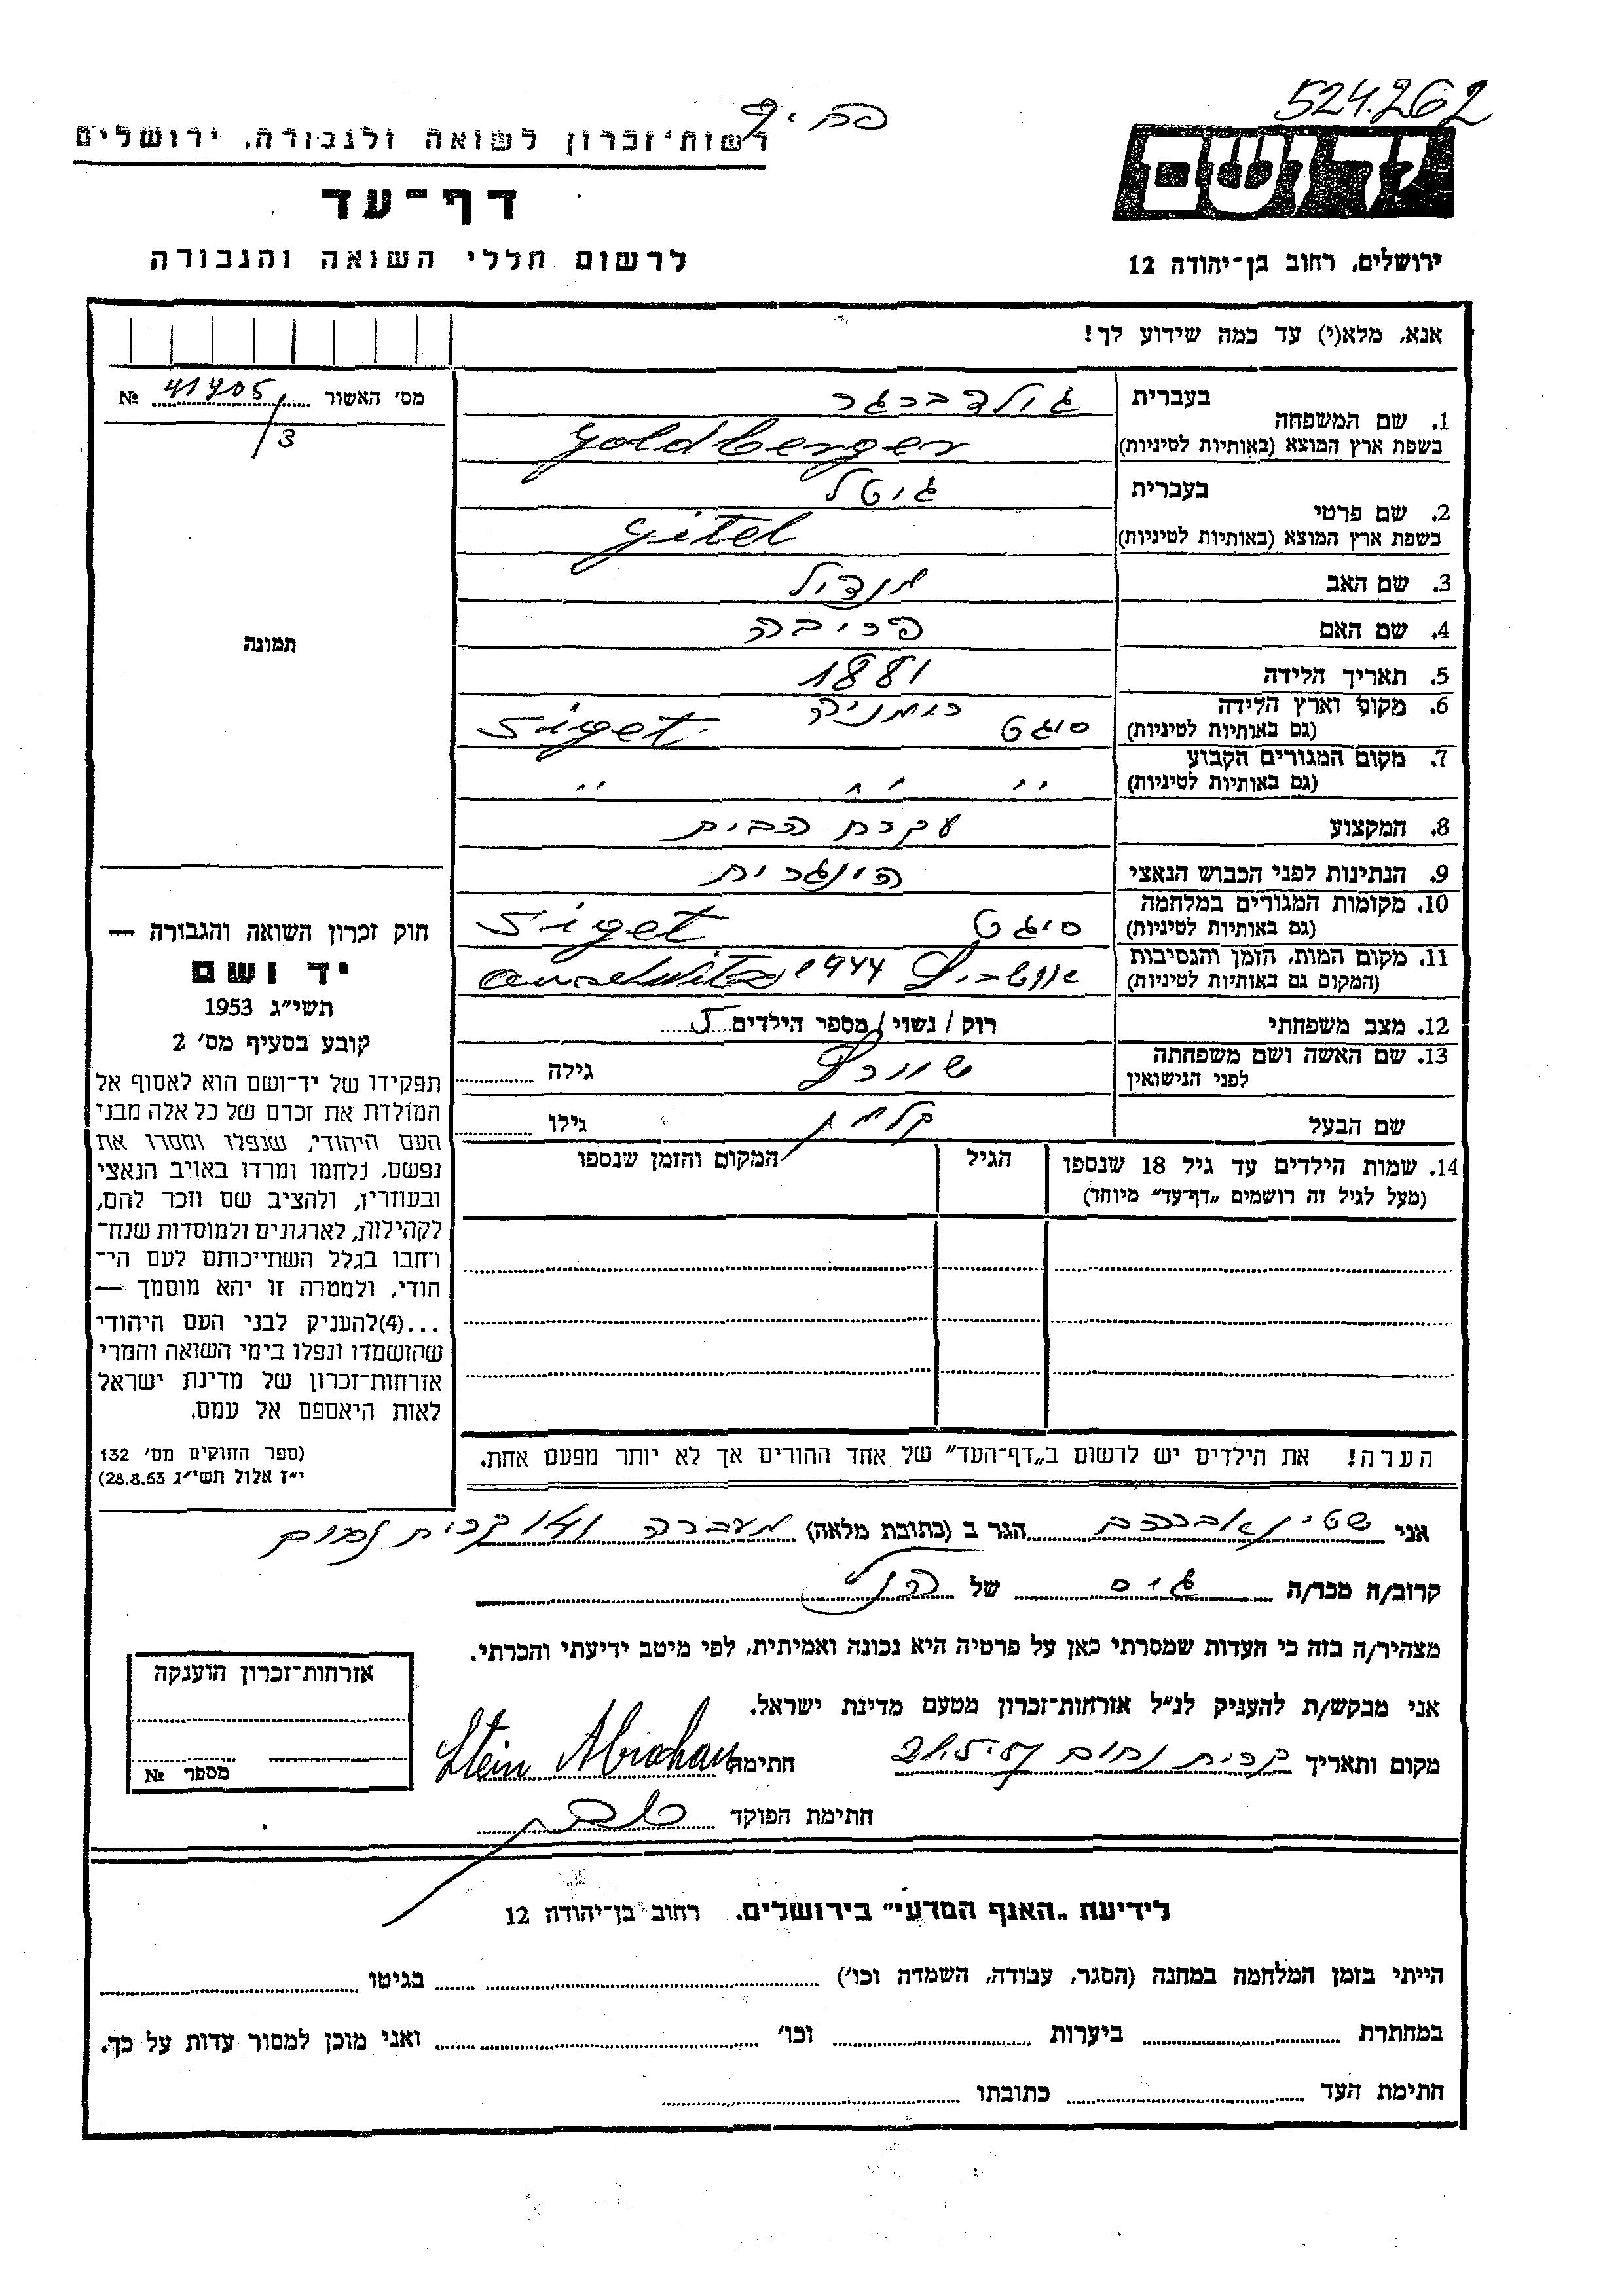 524.262
רשות־זכרון לשואה ולגבורה, ירושלים
יד ושם
דף־עד
לרשום חללי השואה והגבורה
ירושלים, רחוב בן־יהודה 12
אנא, מלא(י) עד כמה שידוע לך!
מס׳ האשור 41705/3 №
תמונה
בעברית גולדברגר
1. שם המשפחה
בשפת ארץ המוצא (באותיות לטיניות) Goldberger
בעברית גיטל
2. שם פרטי
בשפת ארץ המוצא (באותיות לטיניות) Gitel
3. שם האב מנדול
4. שם האם
5. תאריך הלידה 1881
6. מקום וארץ הלידה
(גם באותיות לטיניות) סיגט רומניה Siget
7. מקום המגורים הקבוע
(גם באותיות לטיניות) ״ ״ ״
8. המקצוע עקרת הבית
9. הנתינות לפני הכבוש הנאצי הונגרית
10. מקומות המגורים במלחמה
(גם באותיות לטיניות) סיגט Siget
11. מקום המות, הזמן והנסיבות
(המקום גם באותיות לטיניות) 1944
12. מצב משפחתי רוק / נשוי / מספר הילדים 5
13. שם האשה ושם משפחתה
לפני הנישואין שוורץ גילה
שם הבעל קלמן גילו
14. שמות הילדים עד גיל 18 שנספו הגיל המקום והזמן שנספו
(מעל לגיל זה רושמים „דף־עד״ מיוחד)
חוק זכרון השואה והגבורה —
יד ושם
תשי״ג 1953
קובע בסעיף מס׳ 2
תפקידו של יד־ושם הוא לאסוף אל
המולדת את זכרם של כל אלה מבני
העם היהודי, שנפלו ומסרו את
נפשם, נלחמו ומרדו באויב הנאצי
ובעוזריו, ולהציב שם וזכר להם,
לקהילות, לארגונים ולמוסדות שנח־
רחבו בגלל השתייכותם לעם הי־
הודי, ולמטרה זו יהא מוסמך —
...(4)להעניק לבני העם היהודי
שהושמדו ונפלו בימי השואה והמרי
אזרחות־זכרון של מדינת ישראל
לאות היאספם אל עמם.
(ספר החוקים מס׳ 132
י״ז אלול תשי״ג 28.8.53)
הערה! את הילדים יש לרשום ב„דף־העד״ של אחד ההורים אך לא יותר מפעם אחת.
אני שטיין אברהם הגר ב (כתובת מלאה) מעברה קרית נחום
קרוב/ה מכר/ה גיס של הנ״ל
מצהיר/ה בזה כי העדות שמסרתי כאן על פרטיה היא נכונה ואמיתית, לפי מיטב ידיעתי והכרתי.
אני מבקש/ת להעניק לנ״ל אזרחות־זכרון מטעם מדינת ישראל.
מקום ותאריך קרית נחום חתימה Stein Abraham
חתימת הפוקד
אזרחות־זכרון הוענקה
מספר №
לידיעת „האגף המדעי״ בירושלים. רחוב בן־יהודה 12
הייתי בזמן המלחמה במחנה (הסגר, עבודה, השמדה וכו׳) בגיטו
במחתרת ביערות וכו׳ ואני מוכן למסור עדות על כך.
חתימת העד כתובתו